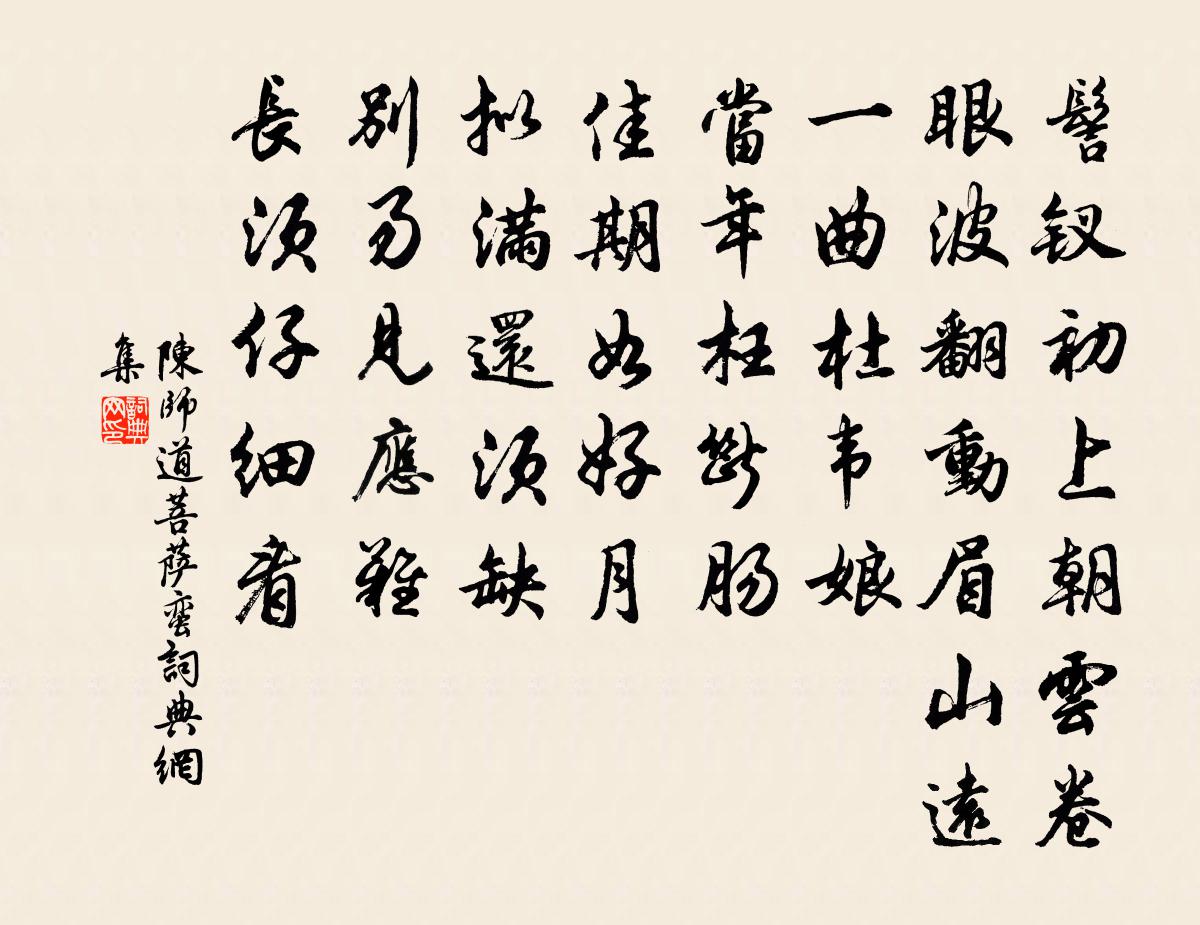 髻釵初上朝雲卷
眼波翻動眉山遠
一曲杜韋娘
當年枉斷腸
佳期如好月
擬滿還須缺
別易見應難
長須仔細看
陳師道菩薩蠻詞典網
集
詞典网印